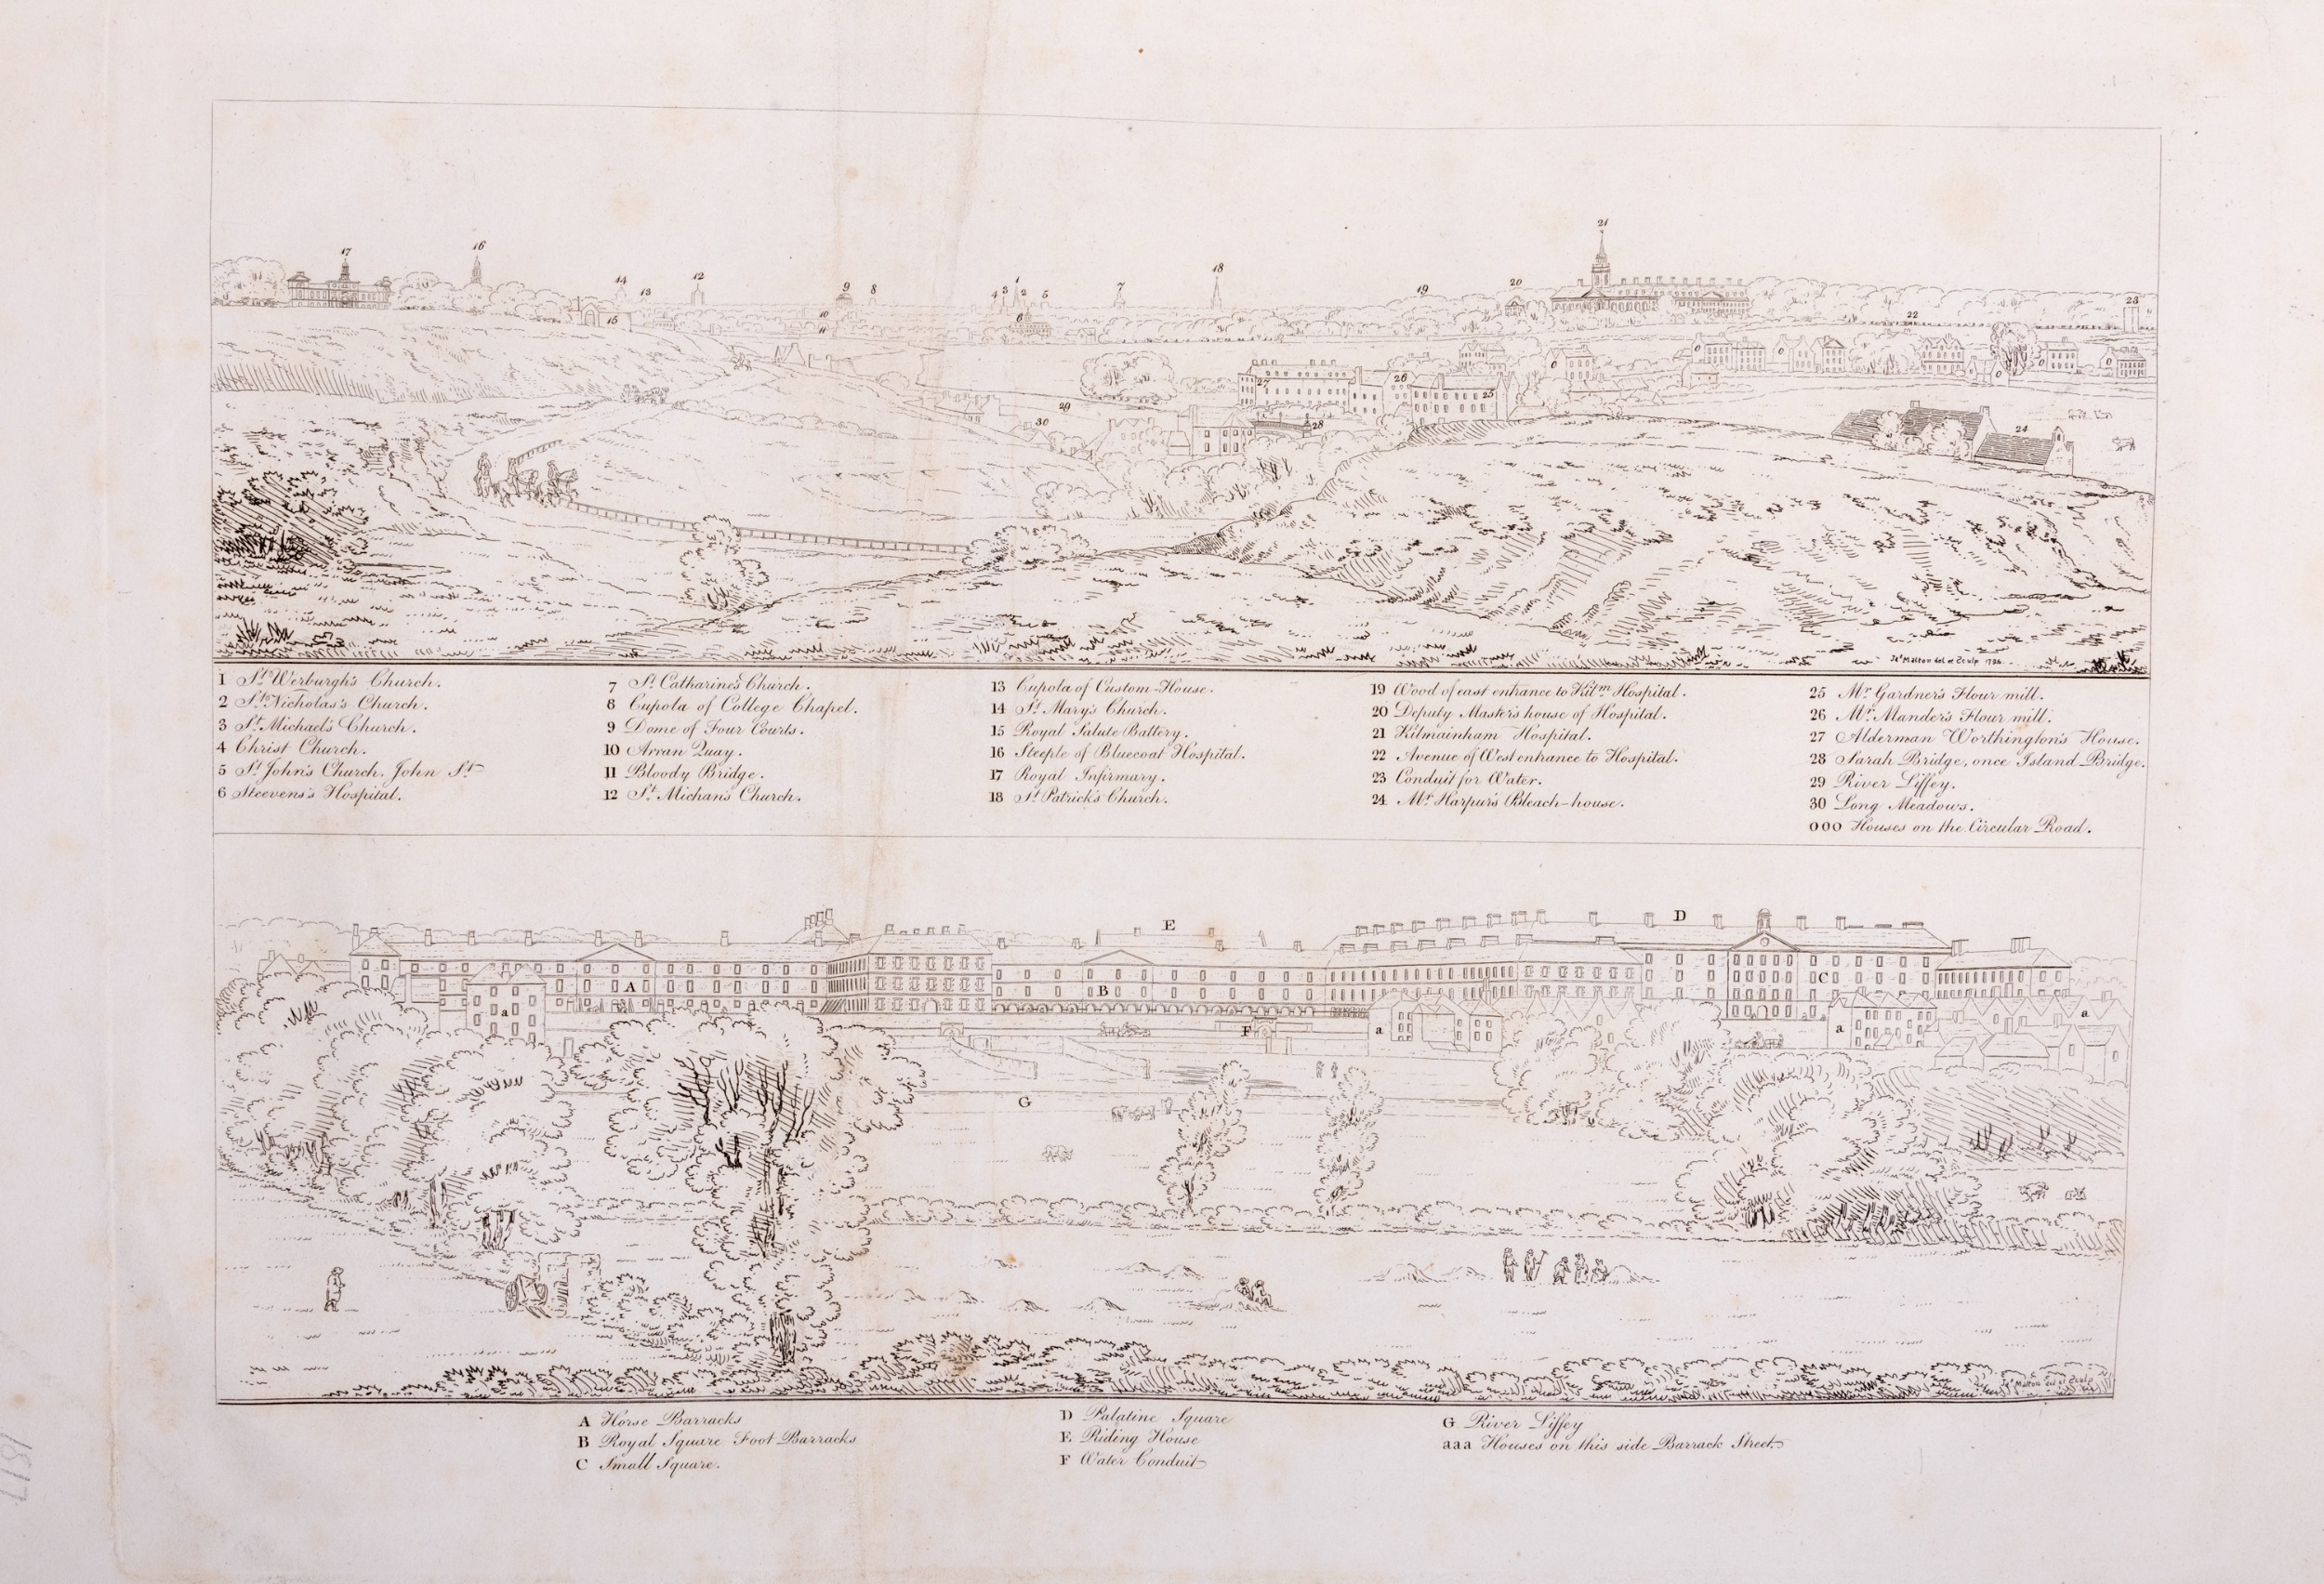 17
16
14
13
12
15
9
8
10
11
4
3
1
2
5
6
7
18
19
20
21
22
23
27
26
25
28
29
30
24
Jas. Malton del. et Sculp 1795.
1 St. Werburgh's Church.
2 St. Nicholas's Church.
3 St. Michael's Church.
4 Christ Church.
5 St. John's Church. John St.
6 Steevens's Hospital.
7 St. Catharine's Church.
8 Cupola of College Chapel.
9 Dome of Four Courts.
10 Arran Quay.
11 Bloody Bridge.
12 St. Michan's Church.
13 Cupola of Custom-House.
14 St. Mary's Church.
15 Royal Salute Battery.
16 Steeple of Bluecoat Hospital.
17 Royal Infirmary.
18 St. Patrick's Church.
19 Wood of east entrance to Kilm. Hospital.
20 Deputy Master's house of Hospital.
21 Kilmainham Hospital.
22 Avenue of West entrance to Hospital.
23 Conduit for Water.
24 Mr. Harpur's Bleach-house.
25 Mr. Gardner's Flour mill.
26 Mr. Mander's Flour mill.
27 Alderman Worthington's House.
28 Sarah Bridge, once Island Bridge.
29 River Liffey.
30 Long Meadows.
ooo Houses on the Circular Road.
E
D
A
B
C
a
F
a
a
a
G
Jas. Malton del et Sculp
A Horse Barracks
B Royal Square Foot Barracks
C Small Square.
D Palatine Square
E Riding House
F Water Conduit
G River Liffey
aaa Houses on this side Barrack Street